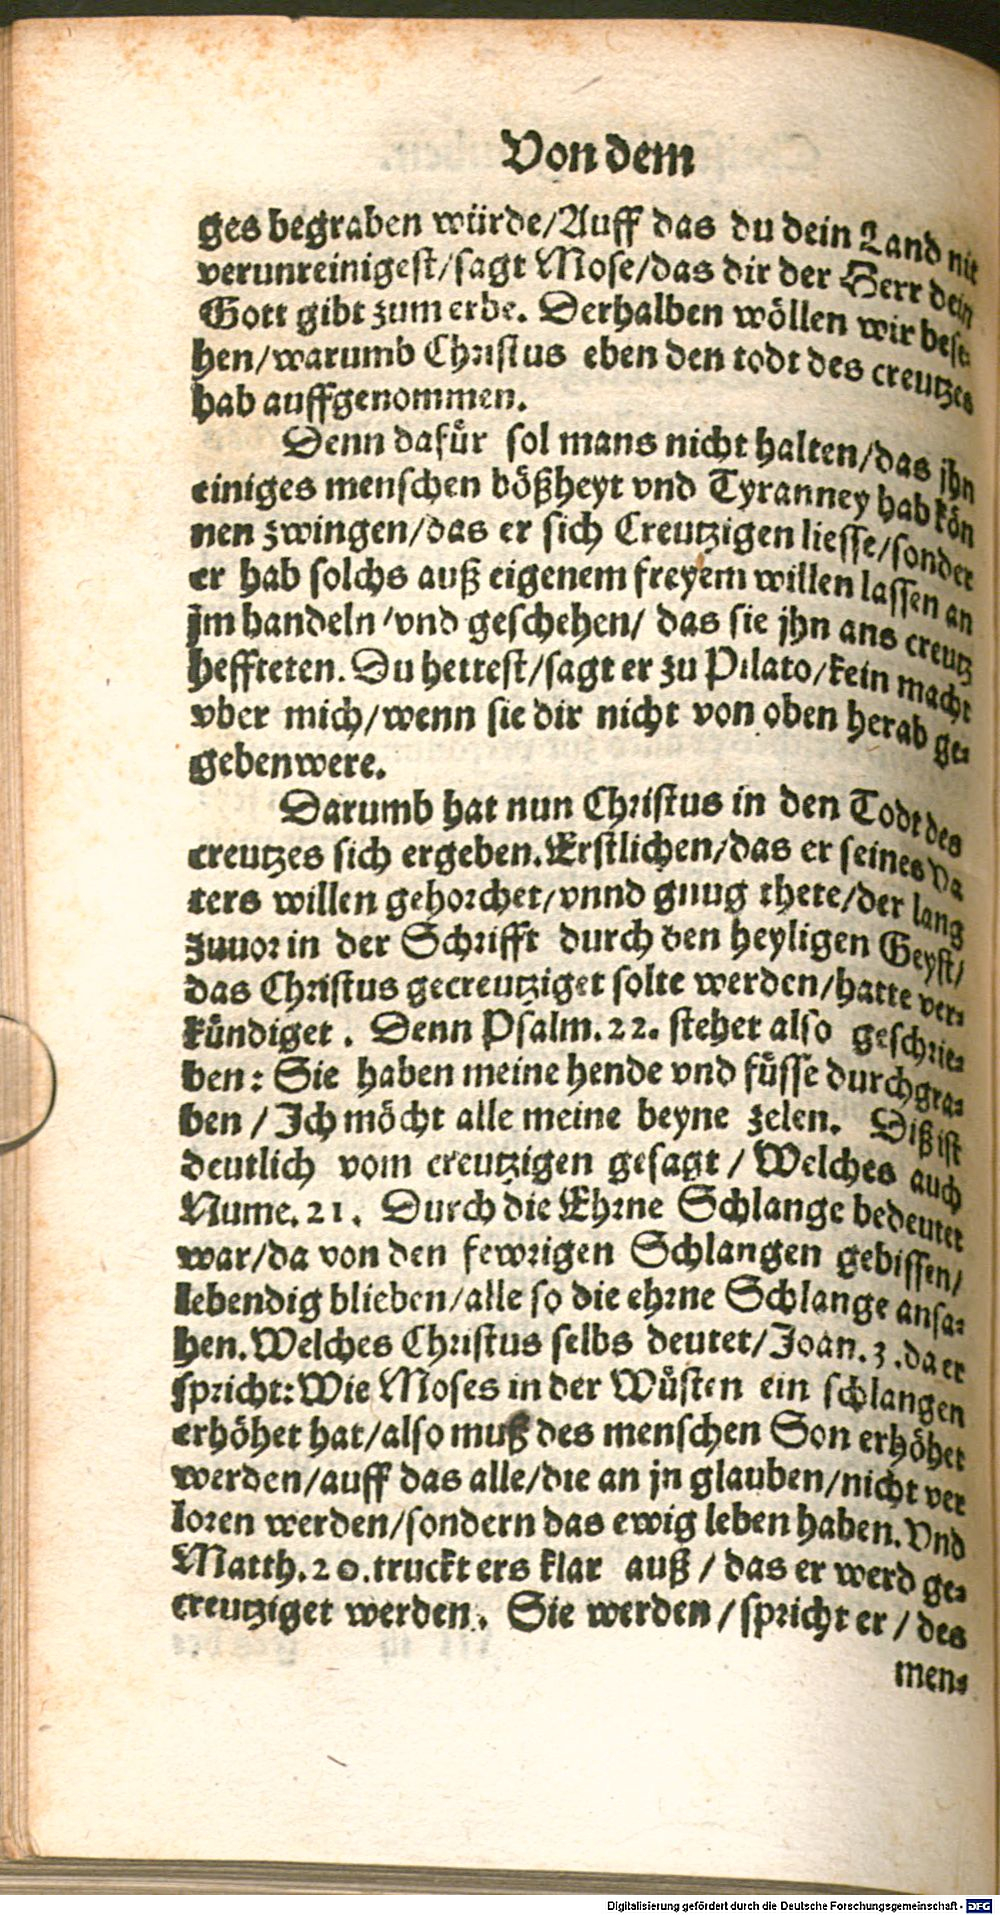 Von dem
ges begraben würde/Auff das du dein Land nit
verunreinigest/sagt Mose/das dir der Herr dein
Gott gibt zum erbe. Derhalben wöllen wir bese-
hen/warumb Christus eben den todt des creutzes
hab auffgenommen.
Denn dafür sol mans nicht halten/das jhn
einiges menschen bößheyt vnd Tyranney hab kön
nen zwingen/das er sich Creutzigen liesse/sonder
er hab solchs auß eigenem freyem willen lassen an
jm handeln/vnd geschehen/ das sie jhn ans creutz
heffteten. Du hettest/sagt er zu Pilato/kein macht
vber mich/wenn sie dir nicht von oben herab ge-
geben were.
Darumb hat nun Christus in den Todt des
creutzes sich ergeben. Erstlichen/das er seines Va
ters willen gehorchet/vnnd gnug thete/der lang
zuuor in der Schrifft durch den heyligen Geyst/
das Christus gecreutziget solte werden/hatte ver-
kündiget. Denn Psalm. 22. stehet also geschrie-
ben: Sie haben meine hende vnd füsse durchgra-
ben / Ich möcht alle meine beyne zelen. Diß ist
deutlich vom creutzigen gesagt / Welches auch
Nume. 21. Durch die Ehrne Schlange bedeutet
war/da von den fewrigen Schlangen gebissen/
lebendig blieben/alle so die ehrne Schlange ansa-
hen. Welches Christus selbs deutet/Joan. 3. da er
spricht: Wie Moses in der Wüsten ein schlangen
erhöhet hat/also muß des menschen Son erhöhet
werden/auff das alle/die an jn glauben/nicht ver
loren werden/sondern das ewig leben haben. Vnd
Matth. 20. truckt ers klar auß / das er werd ge-
creutziget werden. Sie werden / spricht er / des
men-
Digitalisierung gefördert durch die Deutsche Forschungsgemeinschaft - DFG